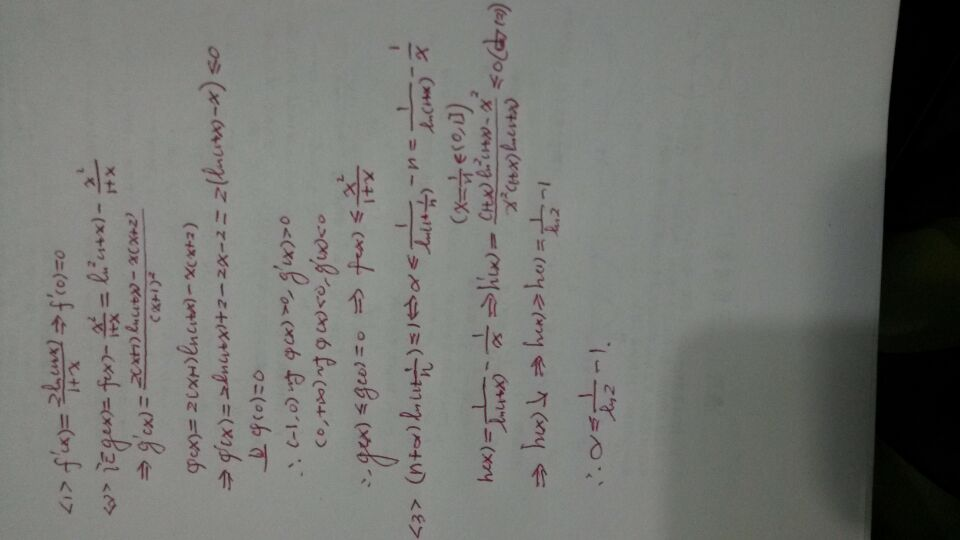 <1> f'(x)=\frac{2ln(1+x)}{1+x} ⇒ f'(0)=0
<2> 记g(x)=f(x)-\frac{x²}{1+x}=ln²(1+x)-\frac{x²}{1+x}
⇒ g'(x)=\frac{2(x+1)ln(1+x)-x(x+2)}{(x+1)²}
φ(x)=2(x+1)ln(1+x)-x(x+2)
⇒ φ'(x)=2ln(1+x)+2-2x-2=2(ln(1+x)-x)≤0
φ(0)=0
∴ (-1,0)时 φ(x)>0, g'(x)>0
(0,+∞)时 φ(x)<0, g'(x)<0
∴ g(x)≤g(0)=0 ⇒ f(x)≤\frac{x²}{1+x}
<3> (n+α)ln(1+\frac{1}{n})≤1 ⇔ α≤\frac{1}{ln(1+\frac{1}{n})}-n=\frac{1}{ln(1+x)}-\frac{1}{x}
(x=\frac{1}{n}∈(0,1])
h(x)=\frac{1}{ln(1+x)}-\frac{1}{x} ⇒ h'(x)=\frac{(1+x)ln²(1+x)-x²}{x²(1+x)ln²(1+x)}≤0
⇒ h(x)↓ ⇒ h(x)≥h(1)=\frac{1}{ln2}-1
∴ α≤\frac{1}{ln2}-1.